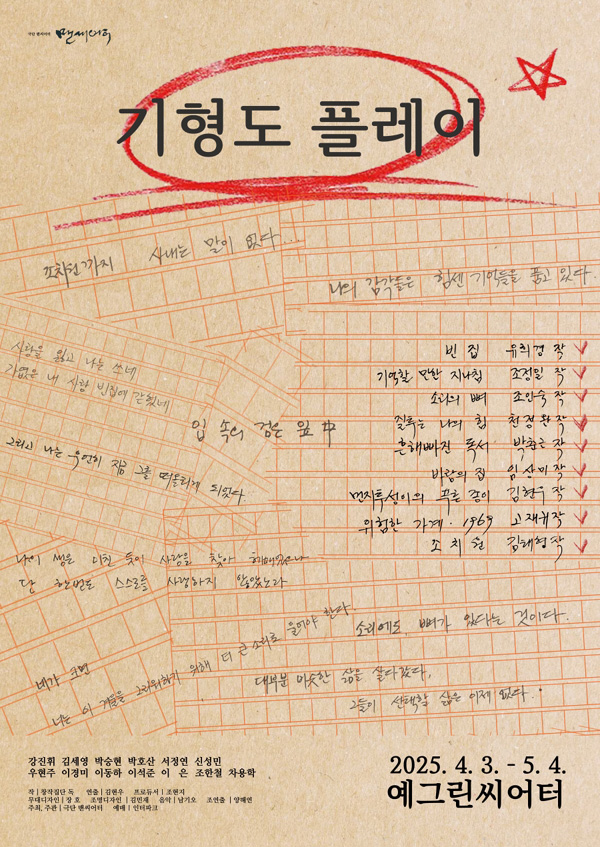 극단 맨씨어터 맨씨어터
기형도 플레이
조치원까지 사내는 말이 없다...
나의 감각들은 힘센 기억들을 품고 있다.
사랑을 잃고 나는 쓰네
가엾은 내 사랑 빈집에 갇혔네
입 속의 검은 잎 中
그리고 나는 우연히 지금 그를 떠올리게 되었다.
빈 집 유희경 작
기억할 만한 지나침 조정일 작
소리의 뼈 조인숙 작
질투는 나의 힘 천정완 작
흔해빠진 독서 박춘근 작
바람의 집 임상미 작
먼지투성이의 푸른 종이 김현우 작
위험한 가계·1969 고재귀 작
조치원 김태형 작
나의 생은 미친 듯이 사랑을 찾아 헤매었으나
단 한번도 스스로를 사랑하지 않았노라
네가 크면
너는 이 겨울을 그리워하기 위해 더 큰 소리로 울어야 한다.
소리에도 뼈가 있다는 것이다.
대부분 비슷한 삶을 살다갔다,
그들이 선택할 삶은 이제 없다..
강진휘 김세영 박승현 박호산 서정연 신성민
우현주 이경미 이동하 이석준 이 은 조한철 차용학
작 | 창작집단 독 연출 | 김현우 프로듀서 | 조현지
무대디자인 | 장 호 조명디자인 | 김민재 음악 | 남기오 조연출 | 양해연
주최, 주관 | 극단 맨씨어터 예매 | 인터파크
2025. 4. 3. - 5. 4.
예그린씨어터